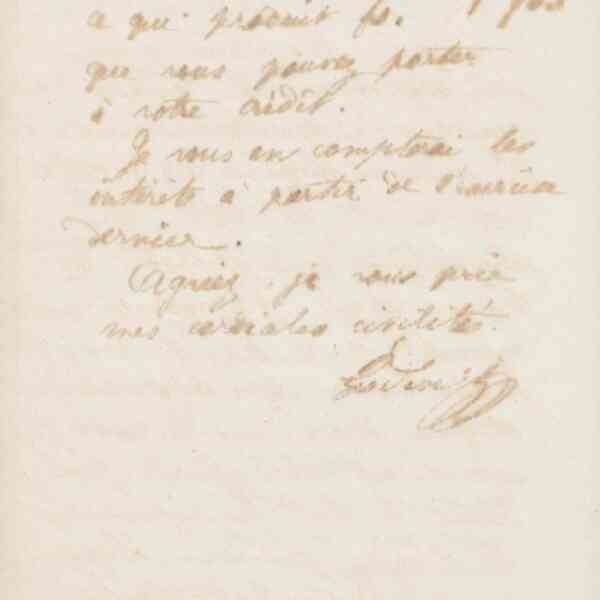 ce qui produit fs.
que vous pouvez porter
à votre crédit.
Je vous en compterai les
intérêts à partir de
dernier.
Agréez, je vous prie
mes cordiales civilités.